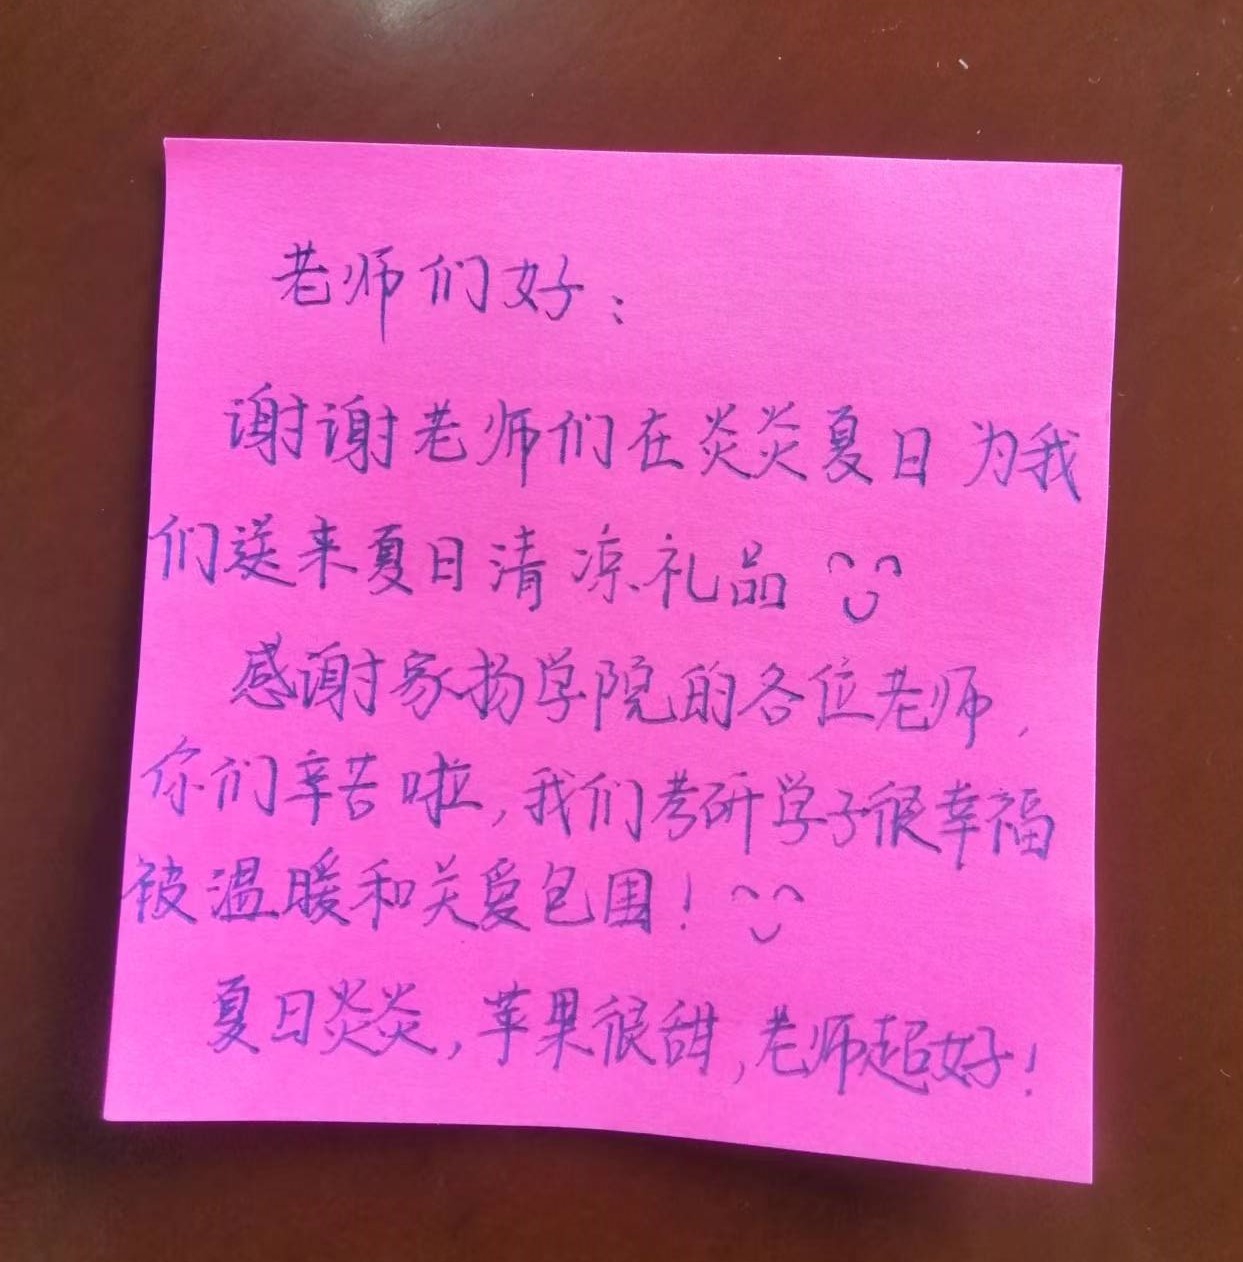 老师们好：
谢谢老师们在炎炎夏日为我
们送来夏日清凉礼品
感谢家扬学院的各位老师，
你们辛苦啦，我们考研学子很幸福
被温暖和关爱包围！
夏日炎炎，苹果很甜，老师超好！